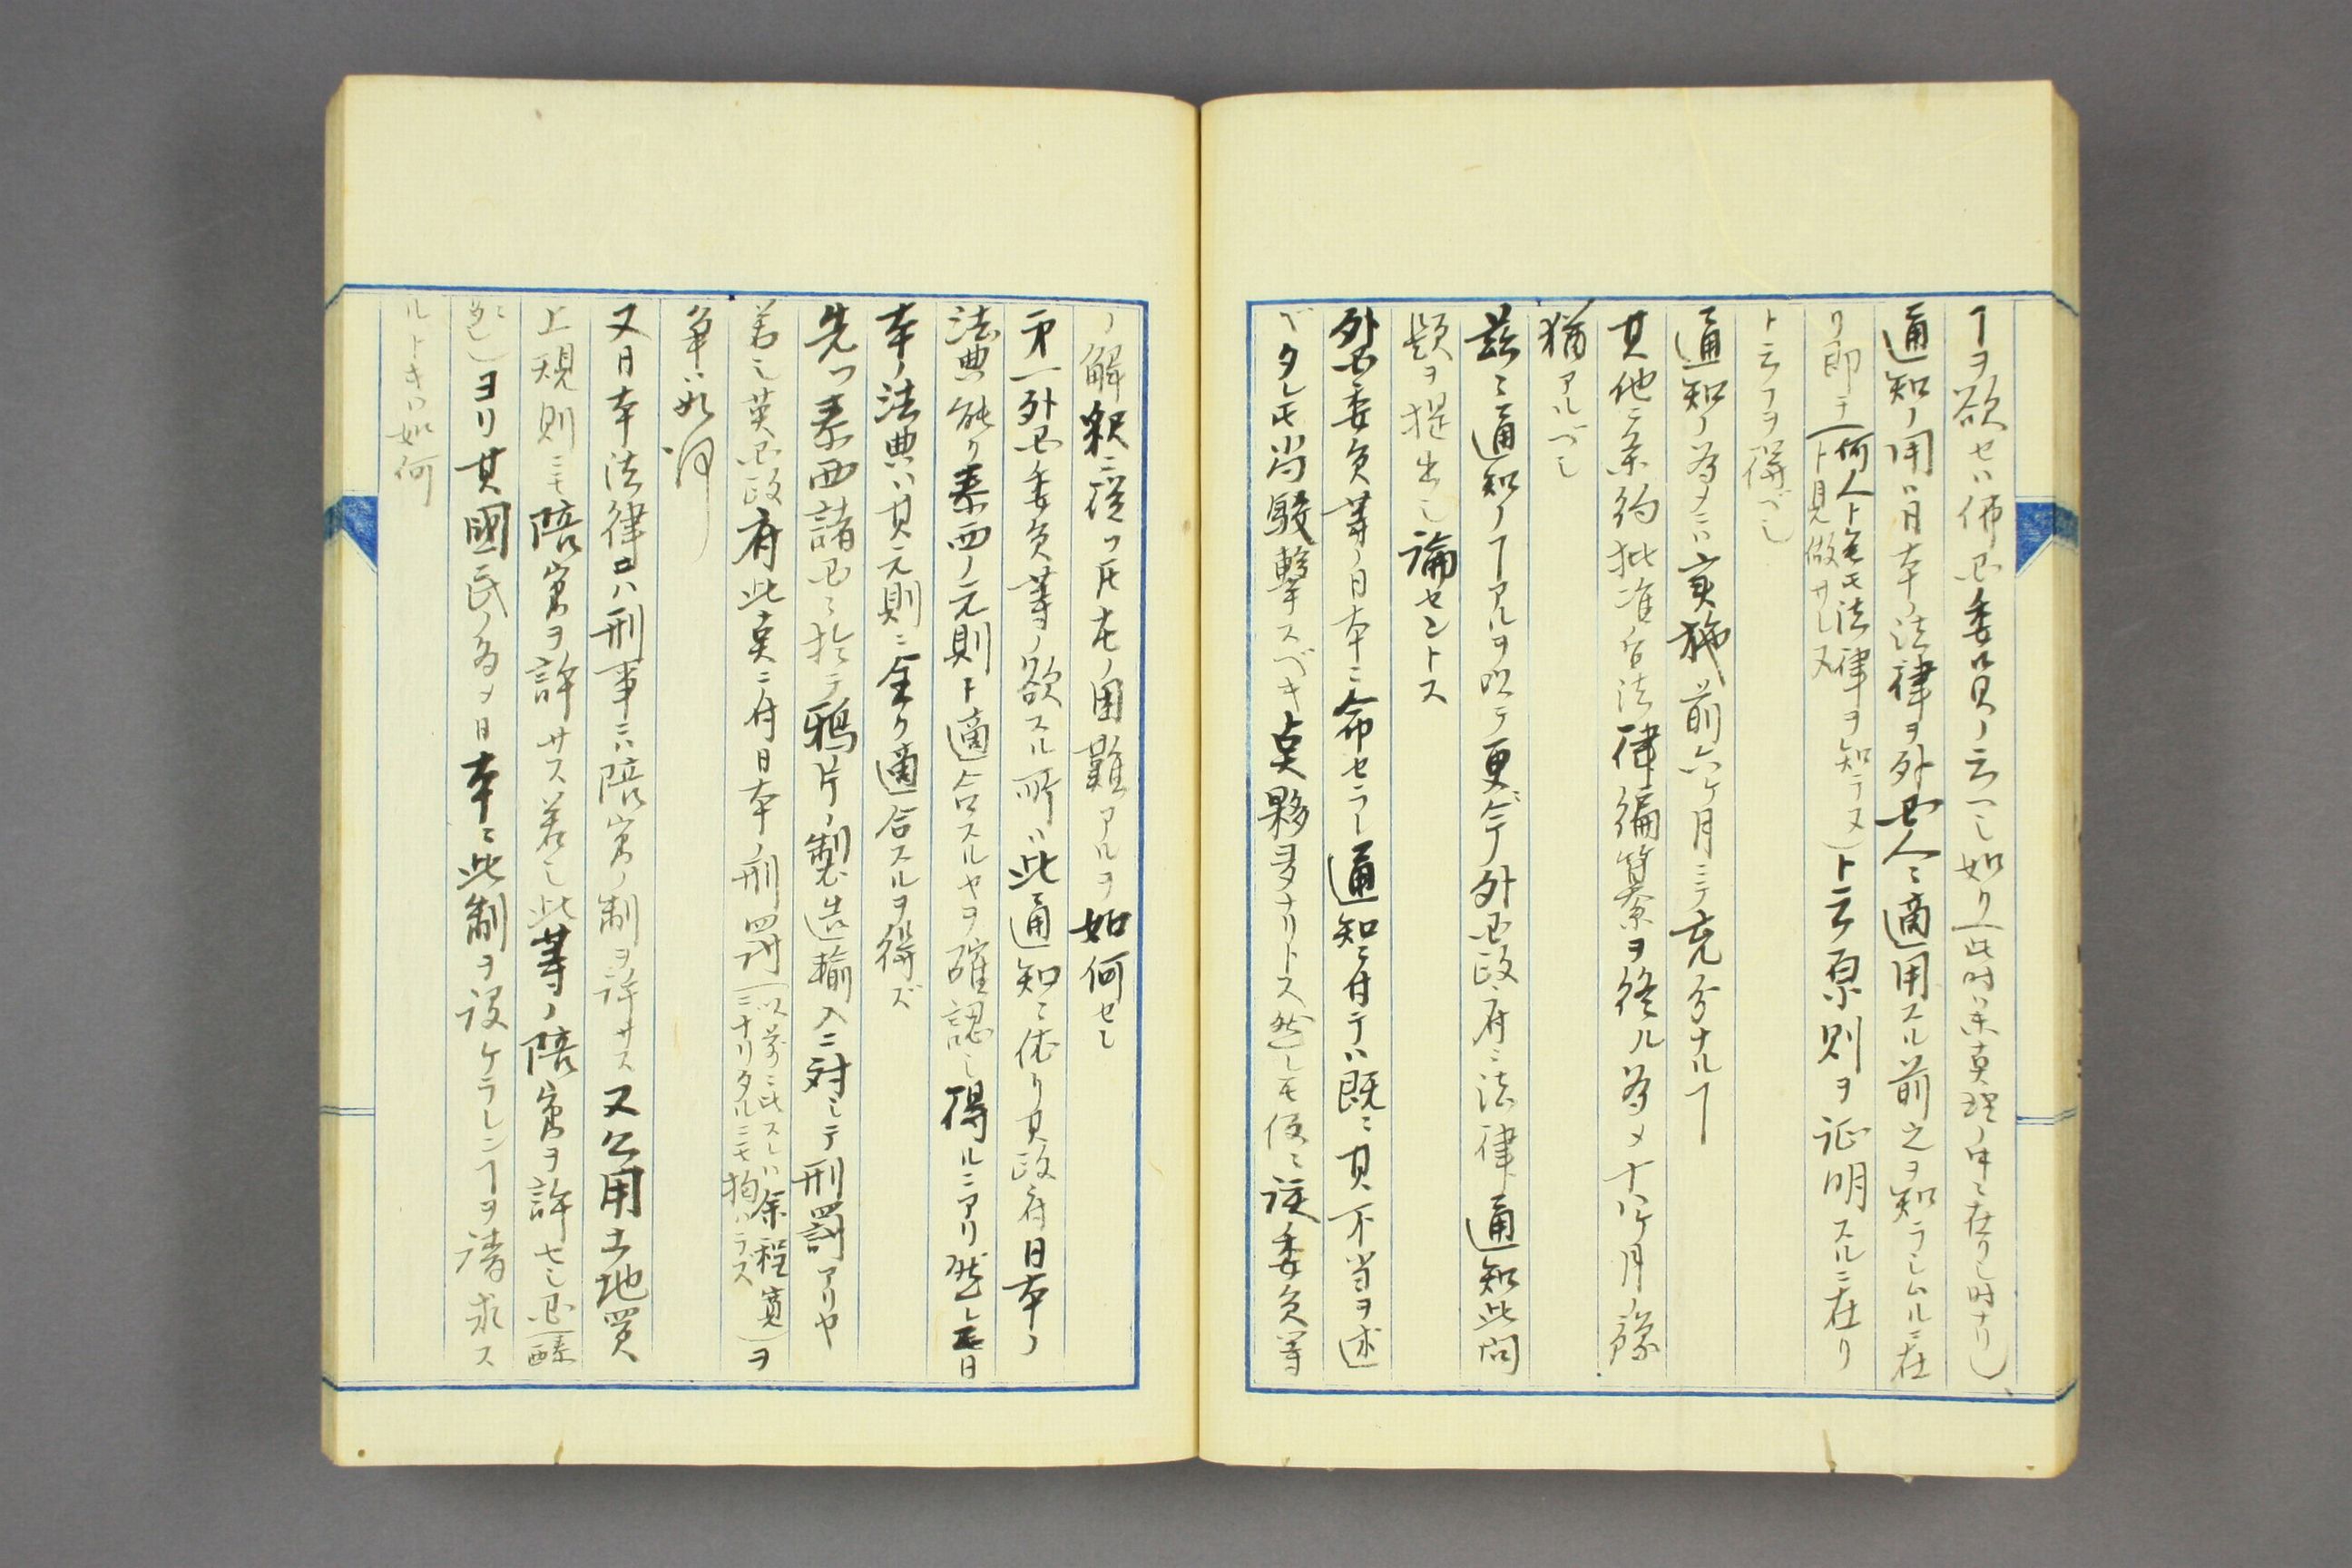 ヿヲ欲セハ佛国委員ノ云ヘシ如ク(此時ハ未真理ノ中ニ在リシ時ナリ)、
通知ノ用ハ日本ノ法律ヲ外国人ニ適用スル前之ヲ知ラシムルニ在
リ即チ(何人ト雖モ法律ヲ知ラヌ
ト見做サレヌ)ト云原則ヲ証明スルニ在リ
ト云フヲ得ベシ
通知ノ為メニハ実施前六ケ月ニテ充分ナルヿ
其他ニ条約批准后法律編纂ヲ終ル為メ十八ケ月ノ豫
猶アルベシ
茲ニ通知ノヿアルヲ以テ更ニ今外国政府ニ法律通知此問
題ヲ提出シ論セントス
外国委員等ノ日本ニ命セラレ通知ニ付テハ既ニ其不当ヲ述
ベタレ𪜈尚駁撃スベキ点夥多ナリトス然レ𪜈仮ニ該委員等
ノ解釈ニ従フ𪜈左ノ困難アルヲ如何セシ
第一外国委員等ノ欲スル所ハ此通知ニ依リ其政府日本ノ
法典能ク泰西ノ元則ト適合スルヤヲ確認シ得ルニアリ然レ𪜈日
本ノ法典ハ其元則ニ全ク適合スルヲ得ズ
先ツ泰西諸国ニ於テ鴉片ノ製造輸入ニ対シテ刑罰アリヤ
若シ英国政府此点ニ付日本ノ刑罰(以前ニ比スレハ余程寛
ニナリタルニモ拘ハラズ)ヲ
争ハヽ如何
又日本法律ハ刑事ニハ陪審ノ制ヲ許サス又公用土地買
上規則ニモ陪審ヲ許サス若シ此等ノ陪審ヲ許セシ国(泰西
ニ多シ)ヨリ其國民ノ為メ日本ニ此制ヲ設ケラレンヿヲ請求ス
ルトキハ如何